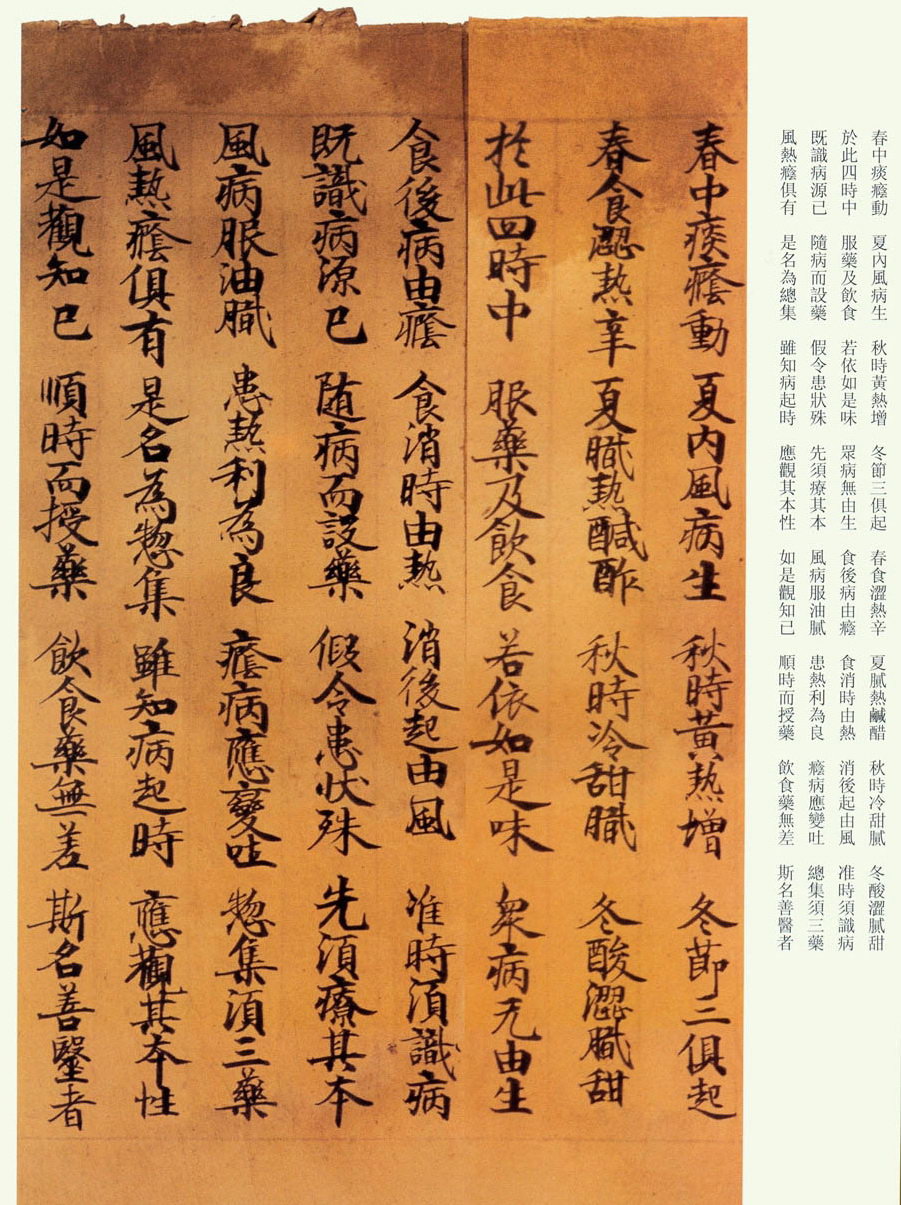 春中痰癊動　夏内風病生　秋時黃熱增　冬節三俱起
春食澀熱辛　夏膩熱醎酢　秋時冷甜膩　冬酸澀膩甜
於此四時中　服藥及飲食　若依如是味　衆病无由生
食後病由癊　食消時由熱　消後起由風　准時須識病
既識病源已　随病而設藥　假令患狀殊　先須療其本
風病服油膩　患熱利為良　癊病應變吐　惣集須三藥
風熱癊俱有　是名為惣集　雖知病起時　應觀其本性
如是觀知已　順時而授藥　飲食藥無差　斯名善醫者
春中痰癊動　夏內風病生　秋時黃熱增　冬節三俱起　春食澀熱辛　夏膩熱鹹醋　秋時冷甜膩　冬酸澀膩甜
於此四時中　服藥及飲食　若依如是味　眾病無由生　食後病由癊　食消時由熱　消後起由風　准時須識病
既識病源已　隨病而設藥　假令患狀殊　先須療其本　風病服油膩　患熱利為良　癊病應變吐　總集須三藥
風熱癊俱有　是名為總集　雖知病起時　應觀其本性　如是觀知已　順時而授藥　飲食藥無差　斯名善醫者